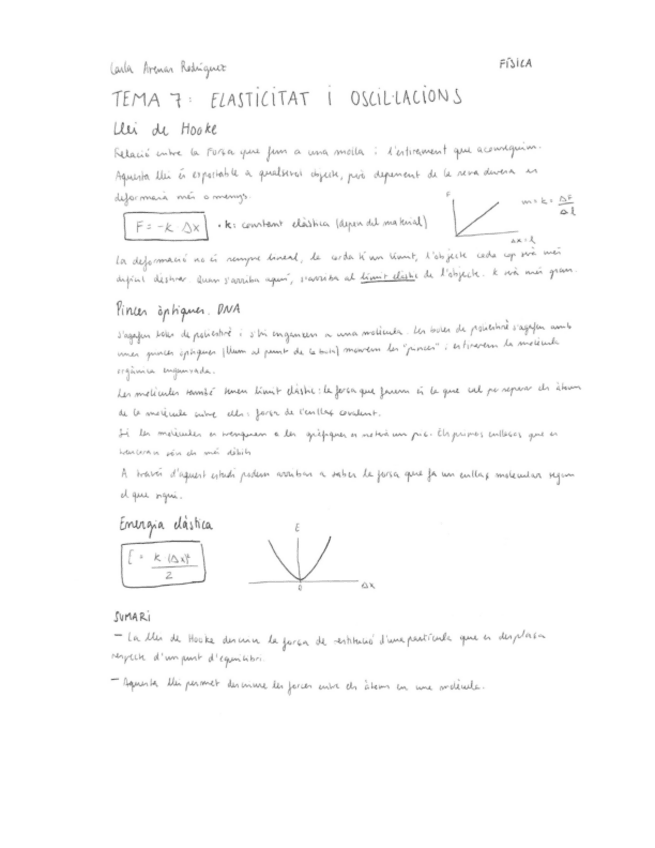 Carla Arenas Rodríguez FÍSICA
TEMA 7: ELASTICITAT I OSCIL·LACIONS
Llei de Hooke
Relació entre la força que fem a una molla i l'estirament que aconseguim.
Aquesta llei és exportable a qualsevol objecte, però depenent de la seva duresa es
deformarà més o menys.
F
m = k = ΔF / Δl
F = -k Δx • k: constant elàstica (depen del material)
Δx = l
La deformació no és sempre lineal, la corda té un límit, l'objecte cada cop serà més
difícil d'estirar. Quan s'arriba aquí, s'arriba al límit elàstic de l'objecte. K serà més gran.
Pinces òptiques. DNA
S'agafen boles de poliestirè i s'hi enganxen a una molècula. Les boles de poliestirè s'agafen amb
unes pinces òptiques (llum al punt de la bola) movem les "pinces" i estirarem la molècula
orgànica enganxada.
Les molècules també tenen límit elàstic: la força que farem és la que cal per separar els àtoms
de la molècula entre ells: força de l'enllaç covalent.
Si les molècules es trenquen a les gràfiques es notarà un pic. Els primers enllaços que es
trencaran són els més dèbils
A través d'aquest estudi podem arribar a saber la força que fa un enllaç molecular segons
el que sigui.
Energia elàstica
E
E = k (Δx)² / 2
0 Δx
SUMARI
– La llei de Hooke descriu la força de restitució d'una partícula que es desplaça
respecte d'un punt d'equilibri.
– Aquesta llei permet descriure les forces entre els àtoms en una molècula.